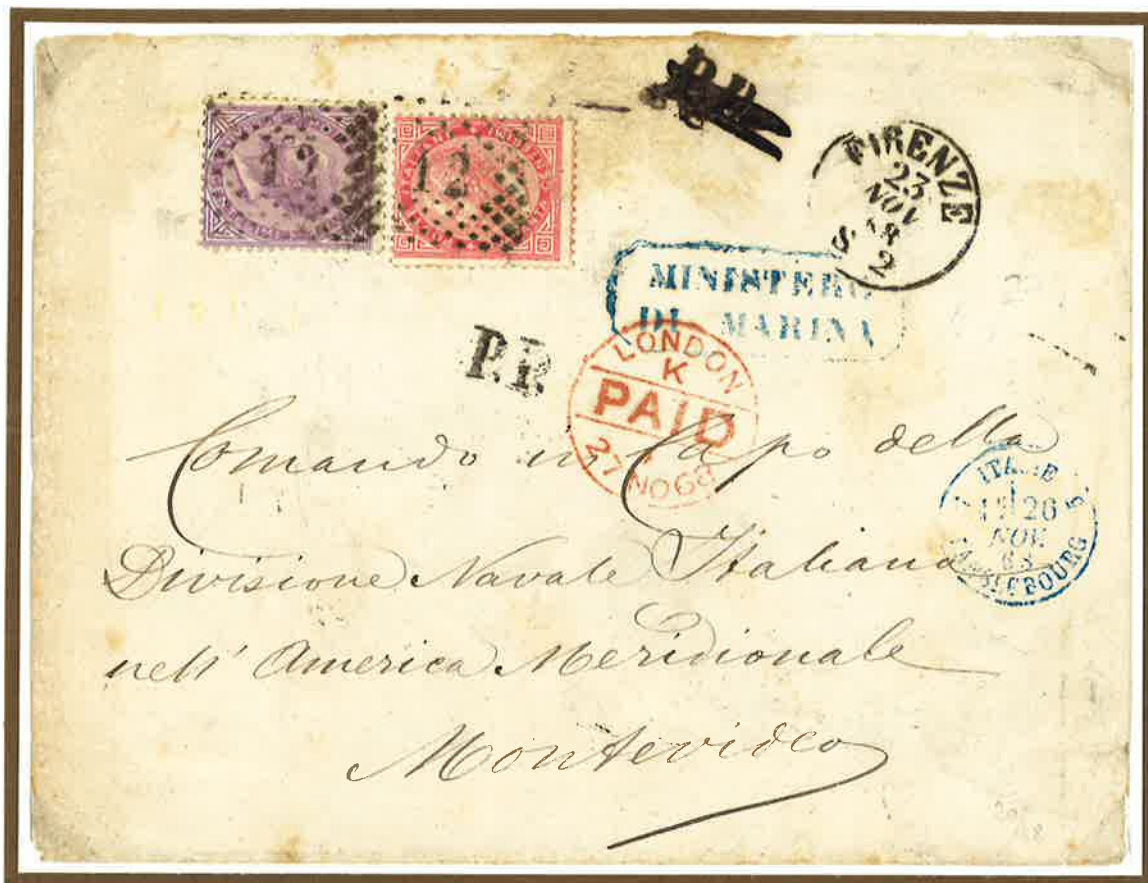 12
12
FIRENZE
23
NOV
68
2 S
MINISTERO
DI MARINA
P.P.
LONDON
K
PAID
27 NO 68
Comando in Capo della
Divisione Navale Italiana
nell' America Meridionale
Montevideo
26
NOV.
68